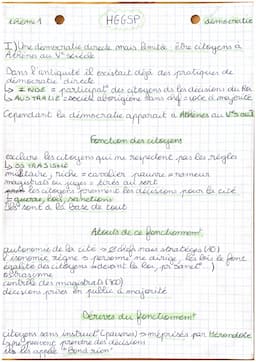 thème 1 HGGSP démocratie
I) Une démocratie directe mais limitée : être citoyens à
Athènes au V° siècle
Dans l'antiquité il existait déjà des pratiques de
démocratie directe.
↳ INDE = participat° des citoyens ds les décisions du Roi
↳ AUSTRALIE = société aborigène sans chef → vote à majorité
Cependant la démocratie apparait à Athènes au V°s
Fonction des citoyens
exclure les citoyens qui ne respectent pas les règles
↳ OSTRACISME
militaire, riche = cavalier pauvre = rameur
magistrats ou juges = tirés au sort
les citoyens prennent les décisions pour la cité
↳ guerre, lois, sanctions
ils sont à la base de tout
Atouts de ce fonctionnement
autonomie de la cité → chefs mais stratèges (10)
règne → personne dirige, les lois le font
égalité des citoyens devant la loi
ostracisme
contrôle des magistrats
décisions prises en public à majorité
Dérives du fonctionnement
citoyens sans instruct° (pauvres) → méprisés par Hérodote
prendre des décisions
les appelle